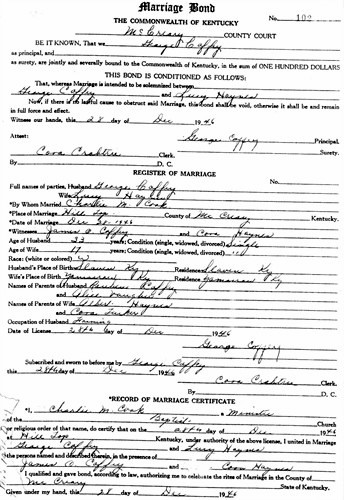 Marriage Bond
THE COMMONWEALTH OF KENTUCKY
No. 102
McCreary COUNTY COURT
BE IT KNOWN, That we George Coffey
as principal, and
as surety, are jointly and severally bound to the Commonwealth of Kentucky, in the sum of ONE HUNDRED DOLLARS
THIS BOND IS CONDITIONED AS FOLLOWS:
That, whereas Marriage is intended to be solemnized between
George Coffey and Lucy Haynes
Now, if there is no lawful cause to obstruct said Marriage, this bond shall be void, otherwise it shall be and remain
in full force and effect.
Witness our hands, this 28 day of Dec 1946
George Coffey Principal.
Attest: Surety.
Cova Crabtree Clerk.
By D. C.
REGISTER OF MARRIAGE
Full names of parties, Husband George Coffey
Wife Lucy Haynes
*By Whom Married Charlie M. Cook
*Place of Marriage Hill Top County of McCreary Kentucky.
*Date of Marriage Dec 1946
*Witnesses James O. Coffey and Haynes
Age of Husband 23 years; Condition (single, widowed, divorced) single
Age of Wife 17 years; Condition (single, widowed, divorced) "
Race: (white or colored) W
Husband's Place of Birth Slavin Ky Residence Slavin Ky
Wife's Place of Birth Ky Residence Ky
Names of Parents of Husband Coffey
and Vaughn
Names of Parents of Wife Albert Haynes
and Cora
Occupation of Husband Farming
Date of License 28th day of Dec 1946
George Coffey
Subscribed and sworn to before me by George Coffey
this 28th day of Dec 1946
Cova Crabtree Clerk.
By D. C.
*RECORD OF MARRIAGE CERTIFICATE
*I, Charlie M. Cook a Minister
of the Baptist Church
or religious order of that name, do certify that on the 28th day of Dec 1946
at Hill Top Kentucky, under authority of the above license, I united in Marriage
George Coffey and Lucy Haynes
the persons named and described therein, in the presence of
James O Coffey and Haynes
I qualified and gave bond, according to law, authorizing me to celebrate the rites of Marriage in the County of
McCreary State of Kentucky.
Given under my hand, this 28 day of Dec 1946